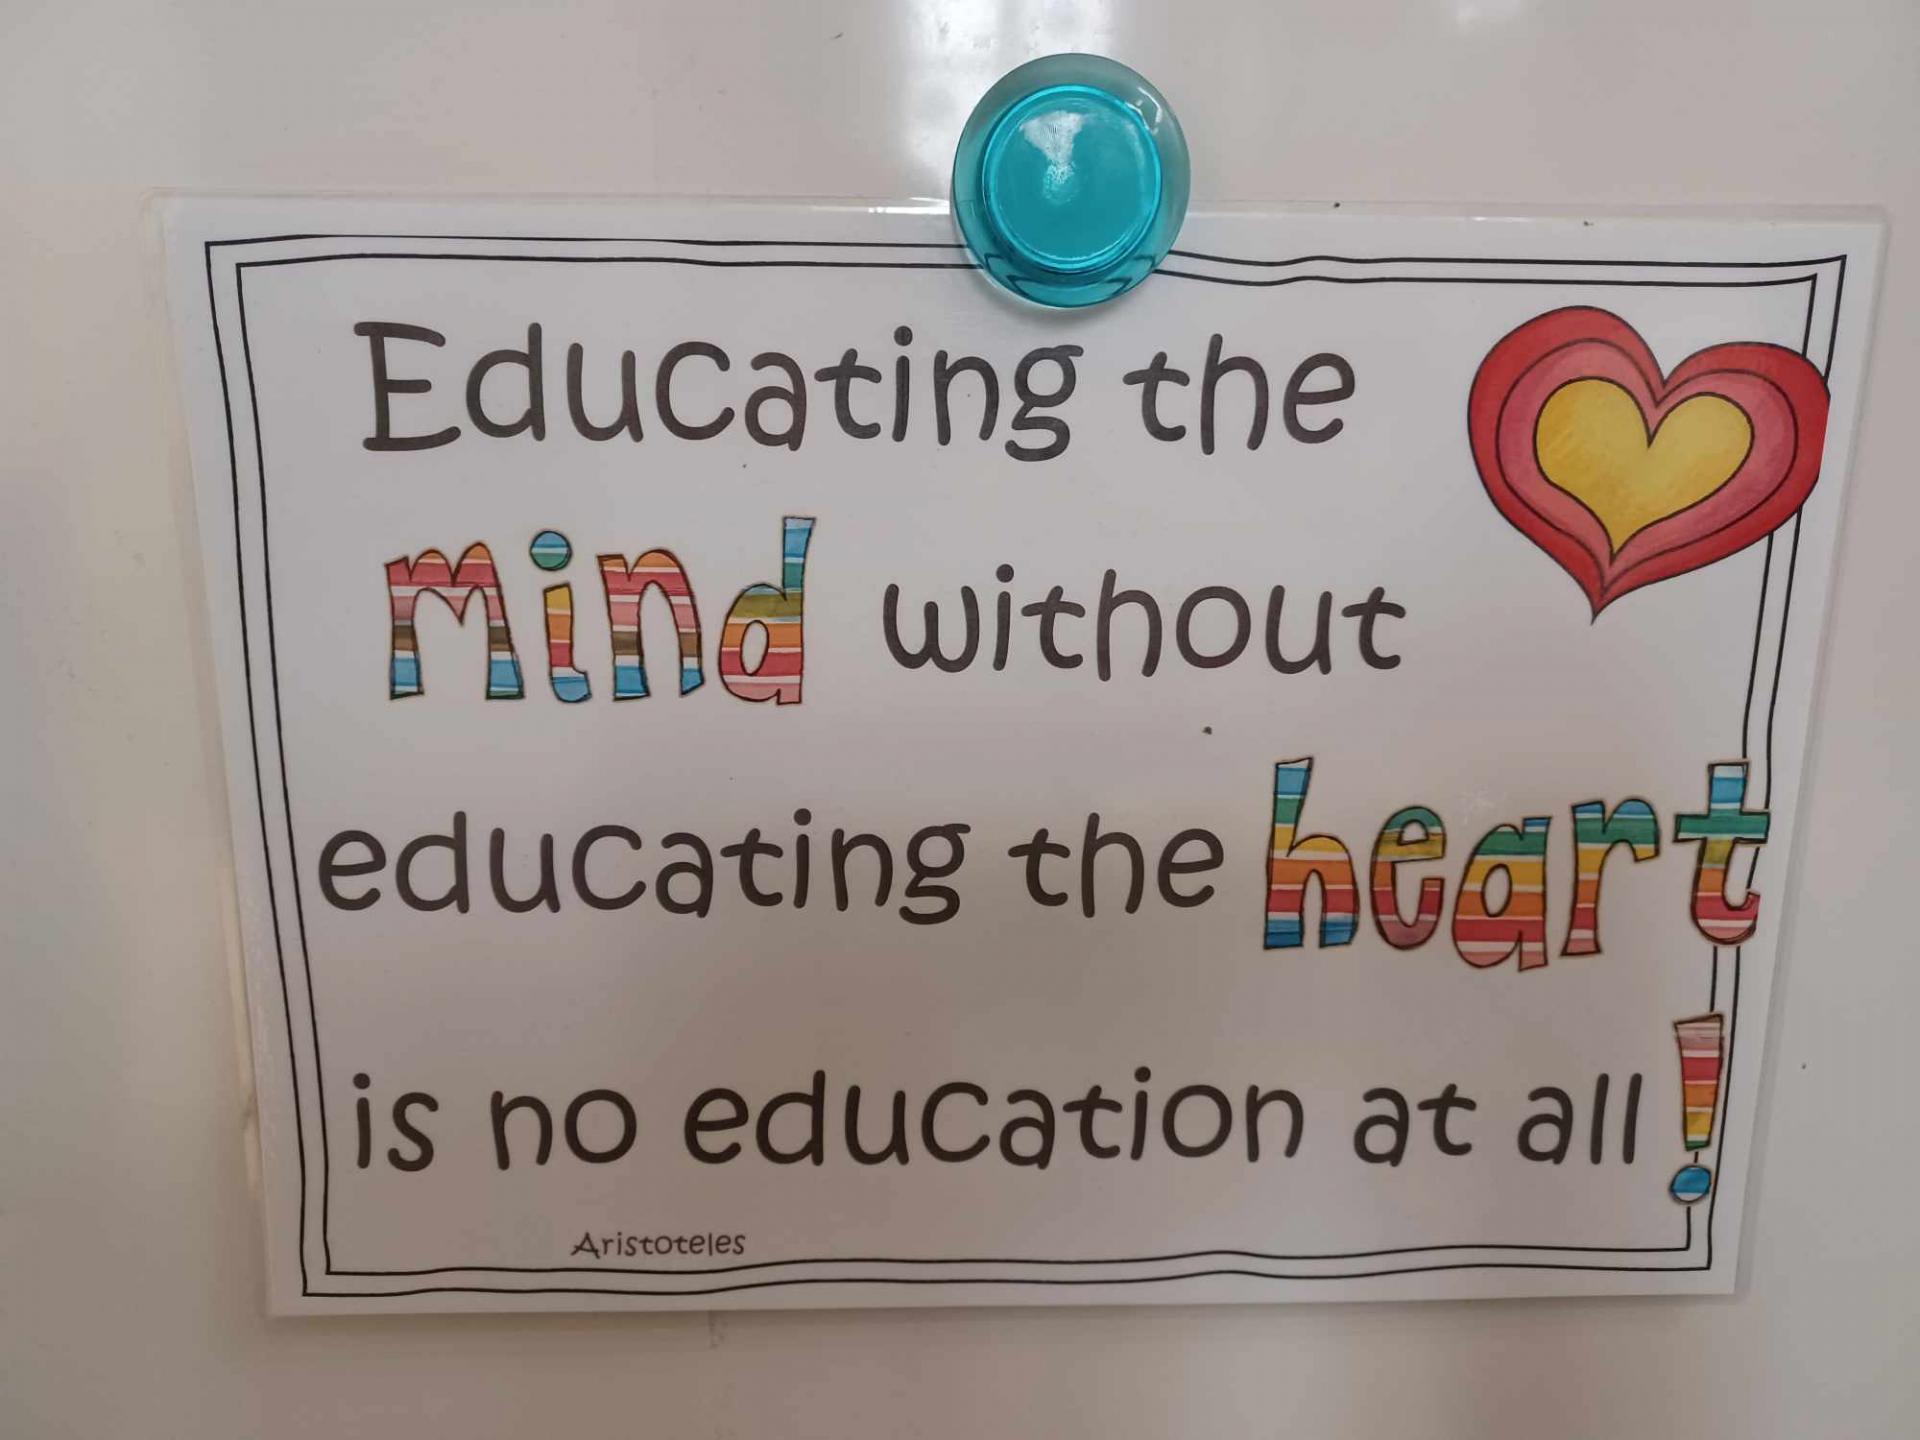 Educating the
mind without
educating the heart
is no education at all!
Aristoteles